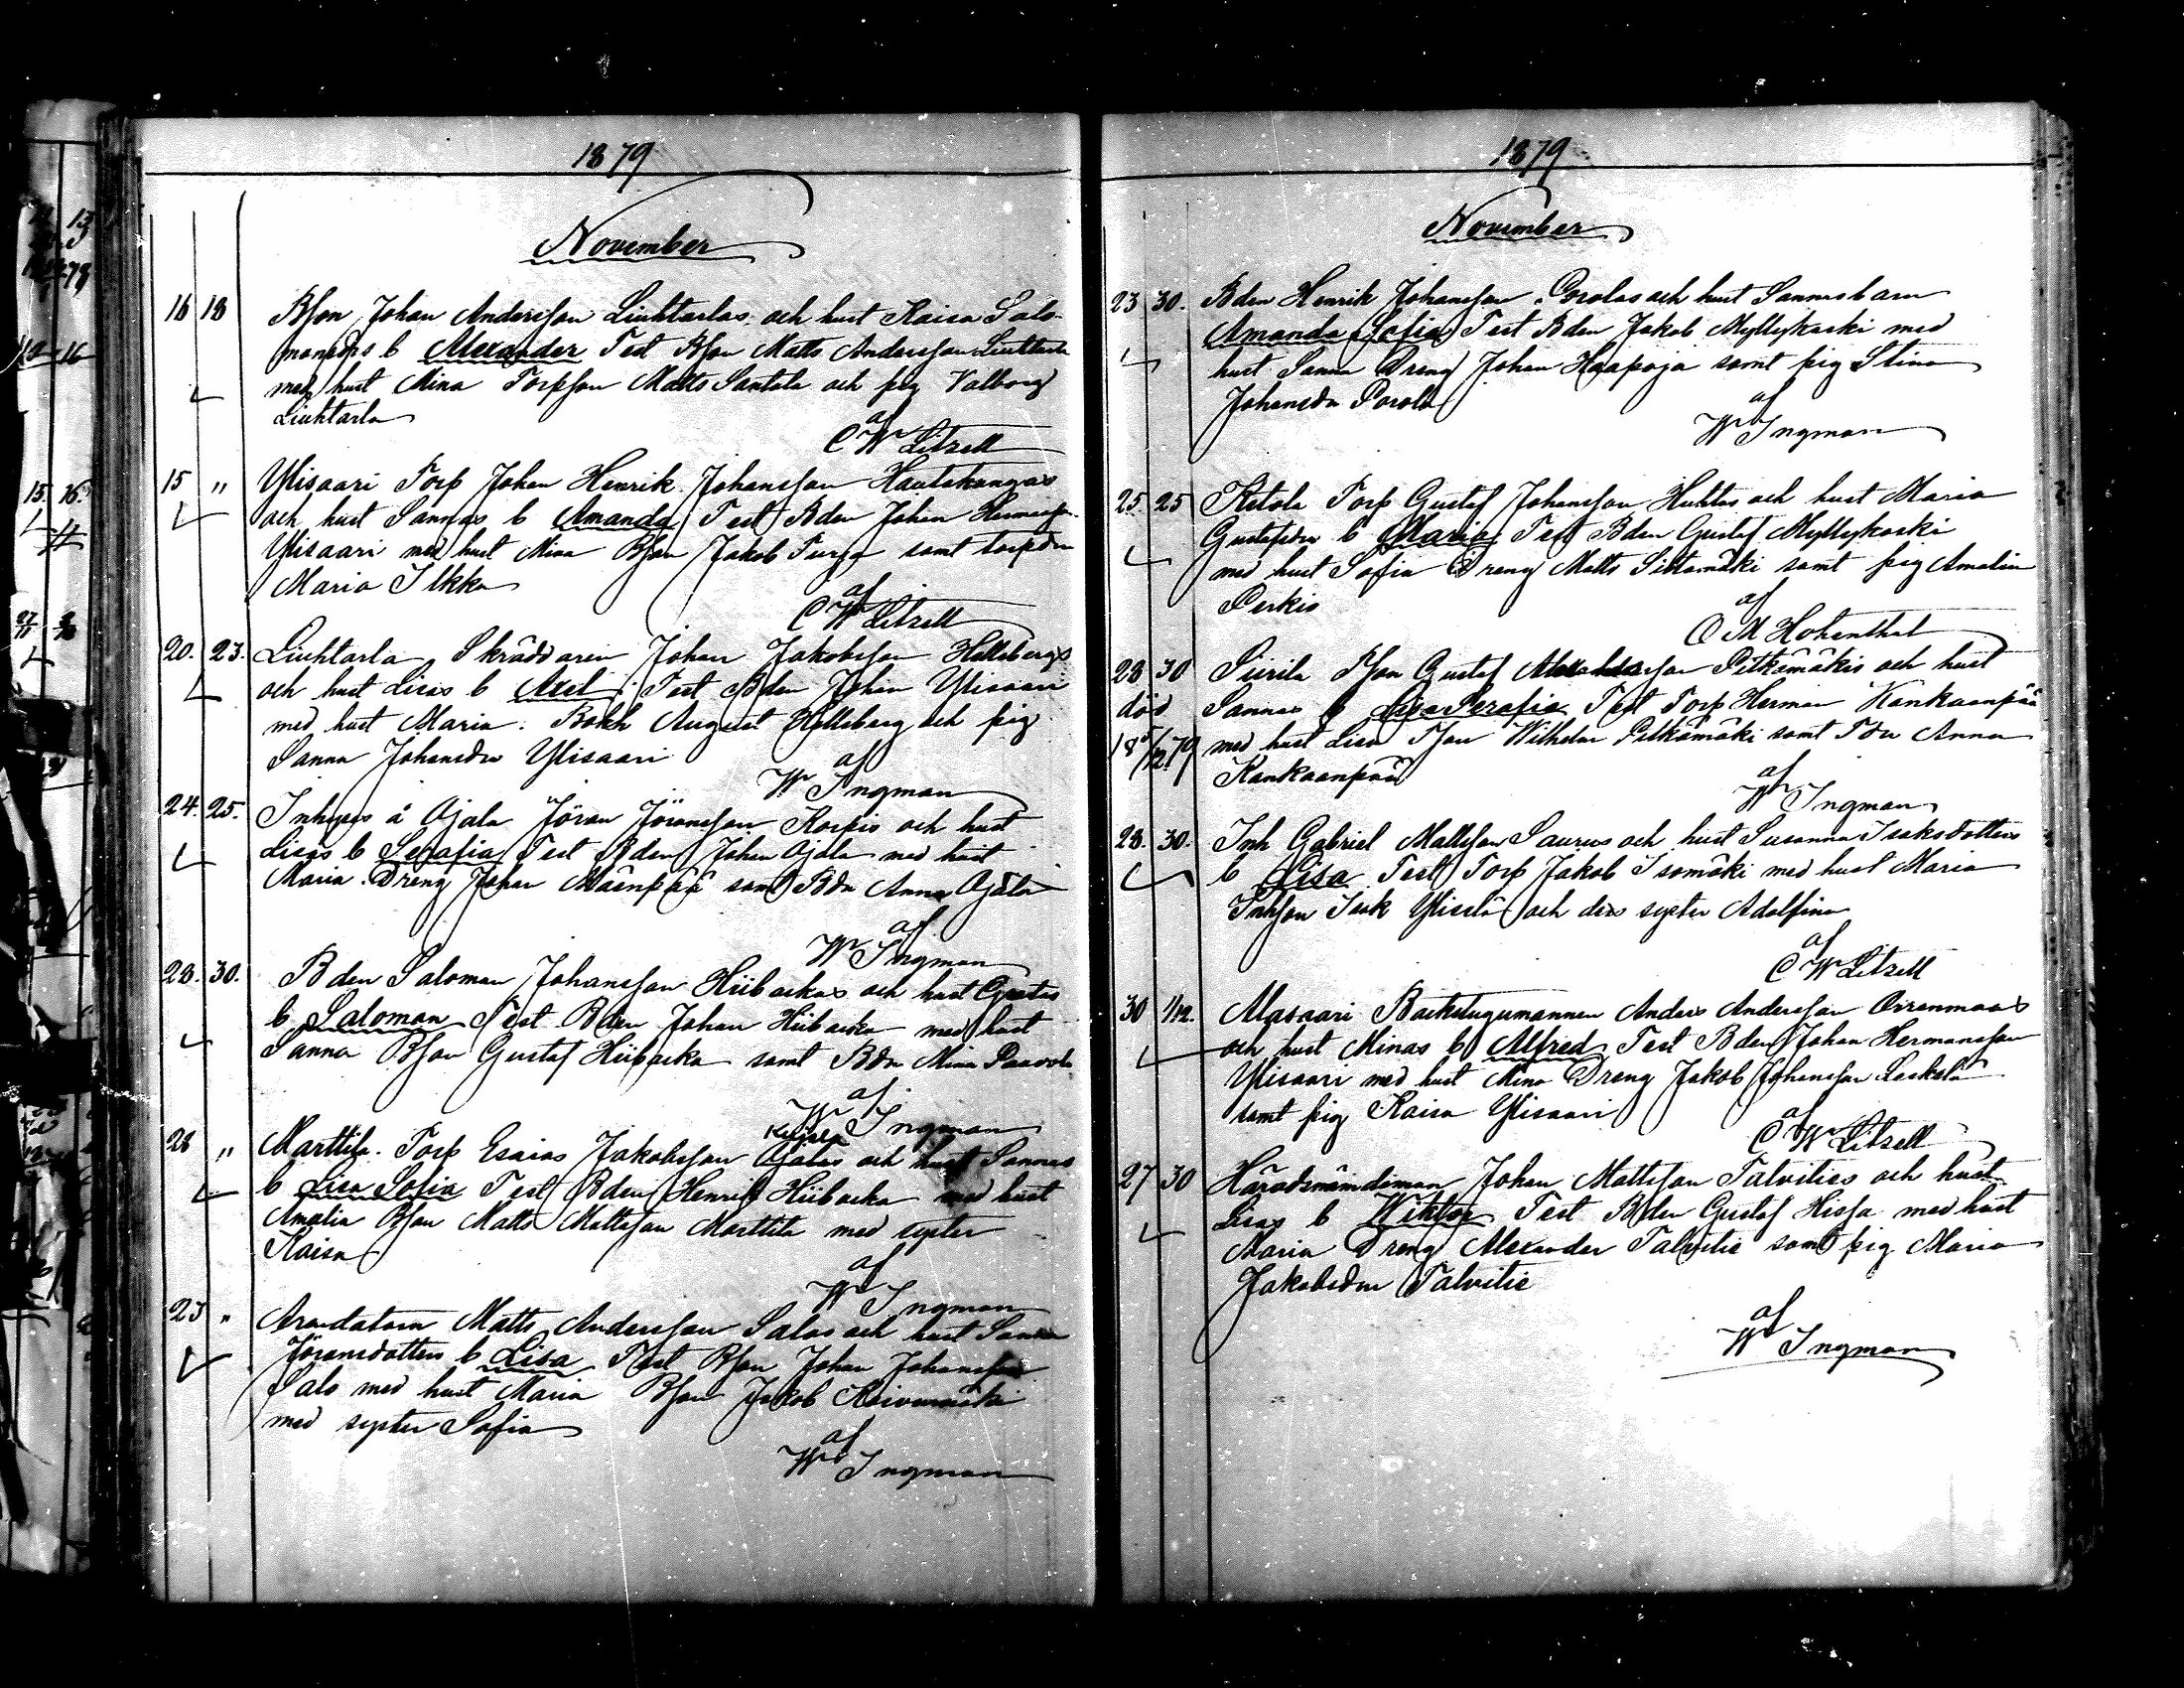 1879
November
16 18 Bson Johan Andersson Liuhtarlas och hust Kaisa Salo-
monsdrs b Alexander Test Bson Matts Andersson Liuhtarla
med hust Mina Torpson Matts Santala och pig Valborg
Liuhtarla
af
C W Litzell
15 " Ylisaari Torp Johan Henrik Johansson Hautakangas
och hust Sannas b Amanda Test Bden Johan Hermansson
Ylisaari med hust Mina Bson Jakob Turja samt torpdr
Maria Ilkka
af
C W Litzell
20. 23. Liuhtarla Skräddaren Johan Jakobsson Hellsbergs
och hust Lisas b Axel Test Bden Johan Ylisaari
med hust Maria. Bokh August Hellsberg och pig
Sanna Johansdr Ylisaari
af
W Ingman
24. 25. Inhyses å Ojala Jöran Jöransson Korpis och hust
Lisas b Serafia Test Bden Johan Ojala med hust
Maria. Dreng Johan Mäenpää samt Bdr Anna Ojala
af
W Ingman
28. 30. Bden Saloman Johansson Hiibackas och hust Gretas
b Saloman Test Bden Johan Hiibacka med hust
Sanna Bson Gustaf Hiibacka samt Bdr Mina Paavola
af
W Ingman
28 " Marttila. Torp Esaias Jakobsson Ojalas och hust Sannas
b Lisa Sofia Test Bden Henrik Hiibacka med hust
Amalia Bson Matts Mattsson Marttila med syster
Kaisa
af
W Ingman
23 " Arendatorn Matts Andersson Salos och hust Sanna
Jöransdotters b Lisa Test Bson Johan Johansson
Salo med hust Maria Bson Jakob Koivumäki
med syster Sofia
af
W Ingman
1879
November
23 30. Bden Henrik Johansson Porolas och hust Sannas barn
Amanda Sofia Test Bden Jakob Myllykoski med
hust Sanna Dreng Johan Haapoja samt pig Stina
Johansdr Porola
af
W Ingman
25. 25 Ketola Torp Gustaf Johansson Huhtas och hust Maria
Gustafsdr b Maria Test Bden Gustaf Myllykoski
med hust Sofia Dreng Matts Siltamäki samt pig Amalia
Perkiö
af
O M Hohenthal
28 30 Siirila Bson Gustaf Alexandersson Pitkämäkis och hust
död Sannas b Lisa Serafia Test Torp Herman Kankaanpää
18 5/12 79 med hust Lisa Bson Wilhelm Pitkämäki samt Tdr Anna
Kankaanpää
af
W Ingman
28. 30. Inh Gabriel Mattsson Saurus och hust Susanna Isaksdotters
b Lisa Test Torp Jakob Isomäki med hust Maria
Inhson Isak Yliselä och dess syster Adolfina
af
C W Litzell
30 1/12. Alasaari Backstugumannen Anders Andersson Orrenmaas
och hust Minas b Alfred Test Bden Johan Hermansson
Ylisaari med hust Mina Dreng Jakob Johansson Laskela
samt pig Kaisa Ylisaari
af
C W Litzell
27 30 Häradsnämndeman Johan Mattsson Talvities och hust
Lisas b Wiktor Test Bden Gustaf Hissa med hust
Maria Dreng Alexander Talvitie samt pig Maria
Jakobsdr Talvitie
af
W Ingman